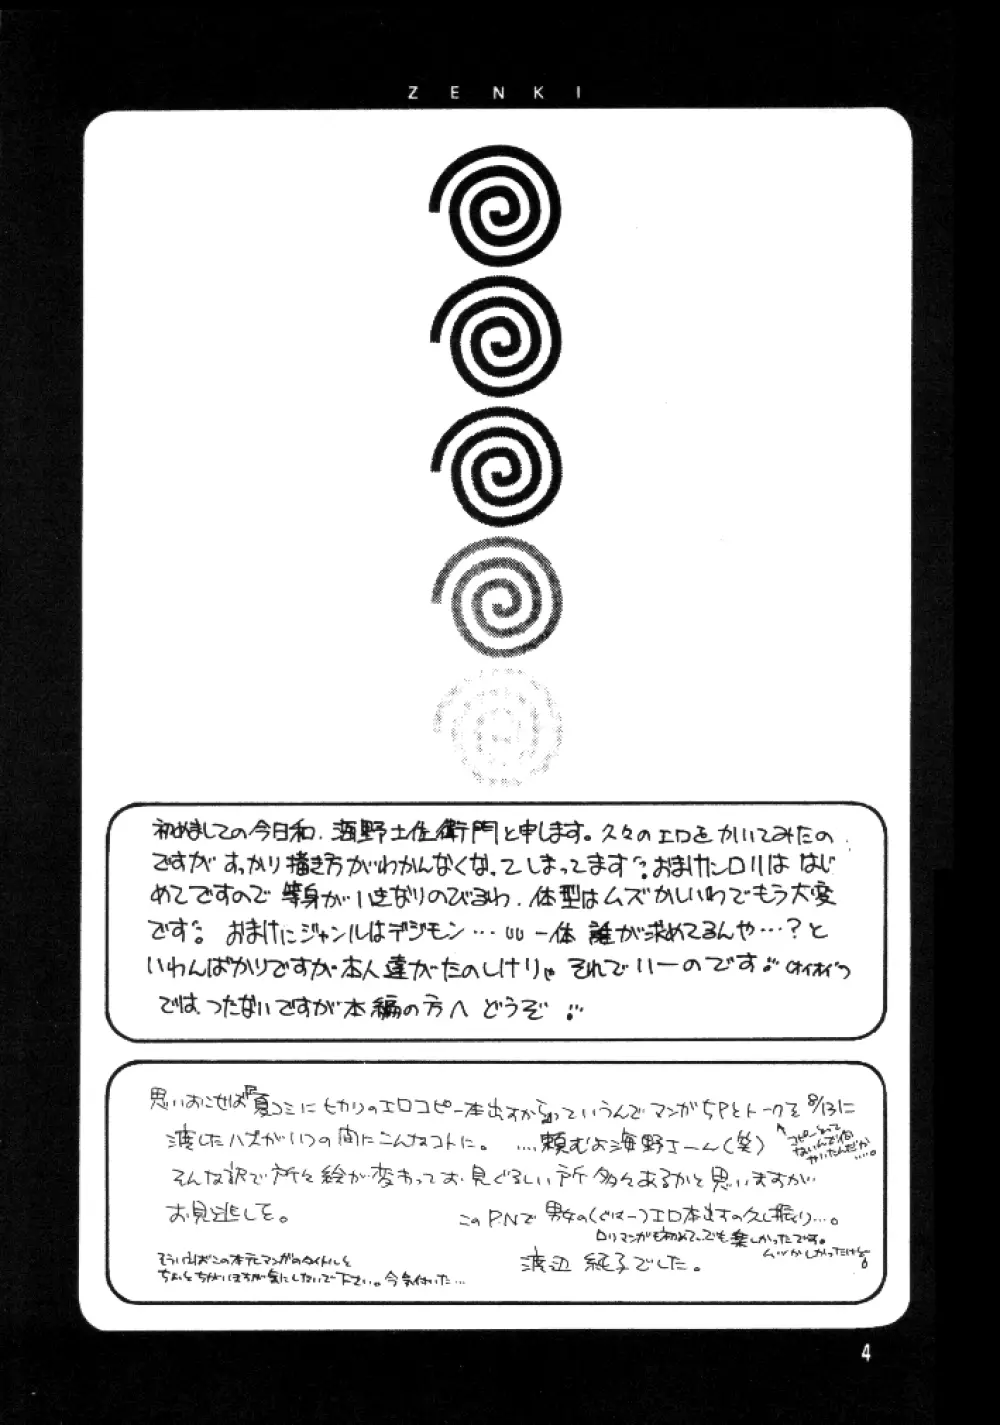 ZENKI
初めましての今日和、海野土佐衛門と申します。久々のエロをかいてみたの
ですがすっかり描き方がわかんなくなってしまってます。おまけにロリははじ
めてですので等身がいきなりのびるわ、体型はムズかしいわでもう大変
です。おまけにジャンルはデジモン…一体誰が求めてるんや…?と
いわんばかりですが本人達がたのしけりゃそれでいーのです。(オイオイ)
では、つたないですが本編の方へどうぞ
思いおこせば『夏コミにヒカリのエロコピー本出すから』っていうんでマンガ5Pとトークを8/13に
渡したハズがいつの間にこんなコトに。....頼むよ海野さーん(笑)
コピーとって
ないんで何
かいたんだか
.....。
そんな訳で所々絵が変わってお見ぐるしい所多々あるかと思いますが…
お見逃しを。
このP.Nで男女の(ぐはーっ)エロ本出すの久し振り…。
ロリマンガも初めて。でも楽しかったです。
ムツかしかったけど
そういえばこの本元マンガのタイトルと
ちょっとちがいますが気にしないで下さい。今気付いた…
渡辺 純子でした。
4